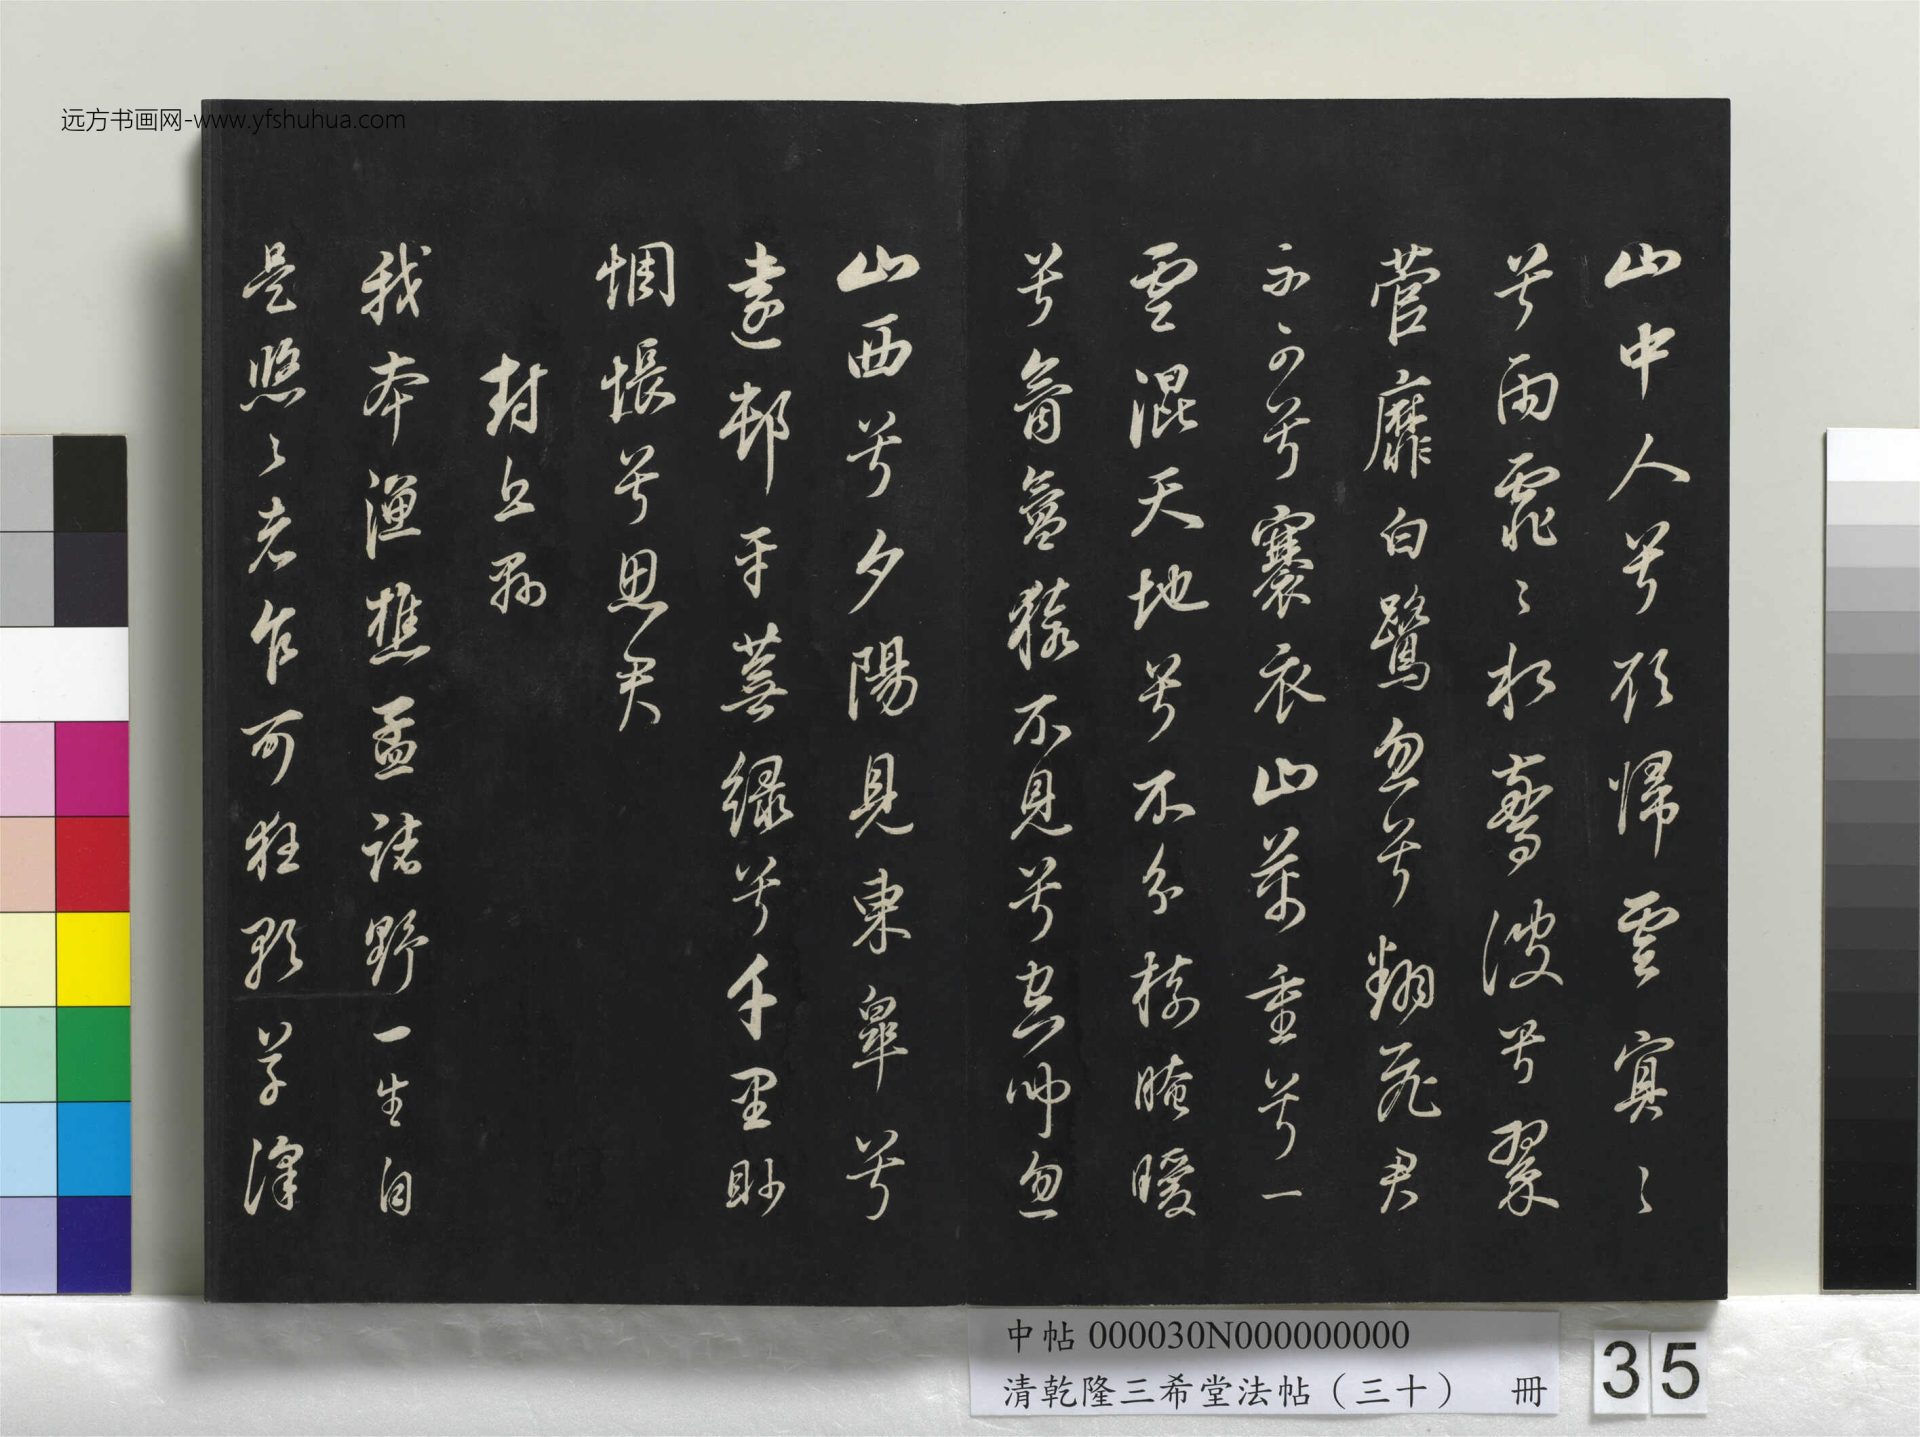 远方书画网-www.yfshuhua.com
山中人兮欲歸雲冥〻
兮雨霏〻水驚波兮翠
菅靡白鷺忽兮翻飛君
不可兮褰衣山萬重兮一
雲混天地兮不分樹晻曖
兮氤氳猿不見兮空聞忽
山西兮夕陽見東皋兮
遠邨平蕪綠兮千里眇
惆悵兮思君
封丘縣
我本漁樵孟諸野一生自
是悠〻者乍可狂歌草澤
中帖 000030N000000000
清乾隆三希堂法帖（三十） 冊
35